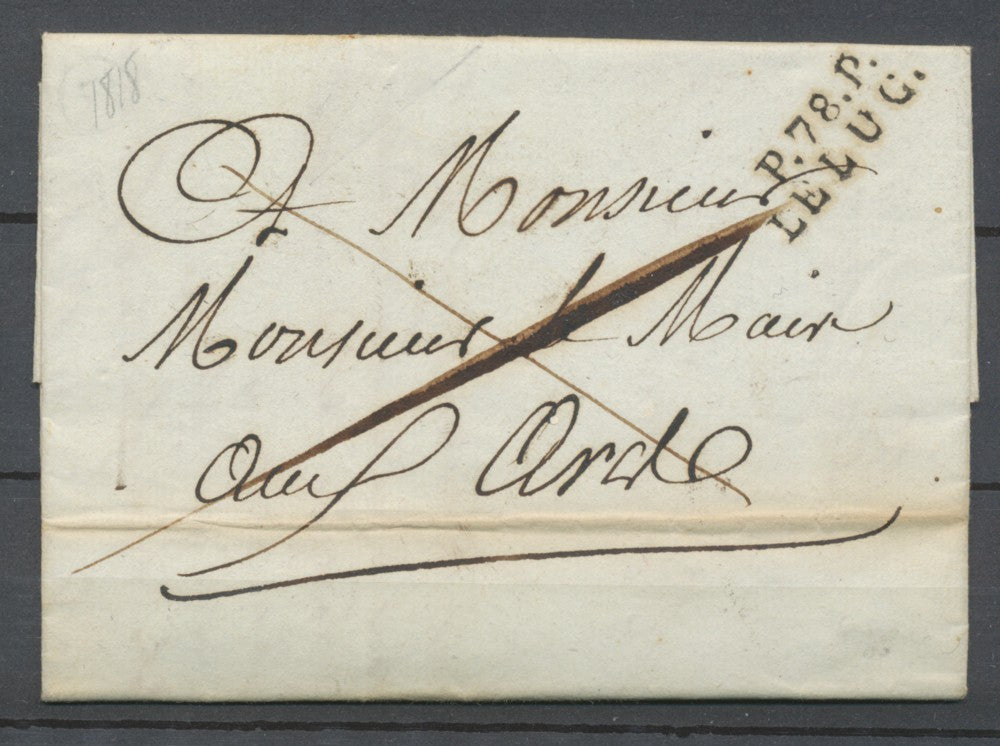 1818
P.78.P.
LELUG.
A Monsieur
Monsieur le Maire
aux Arcs